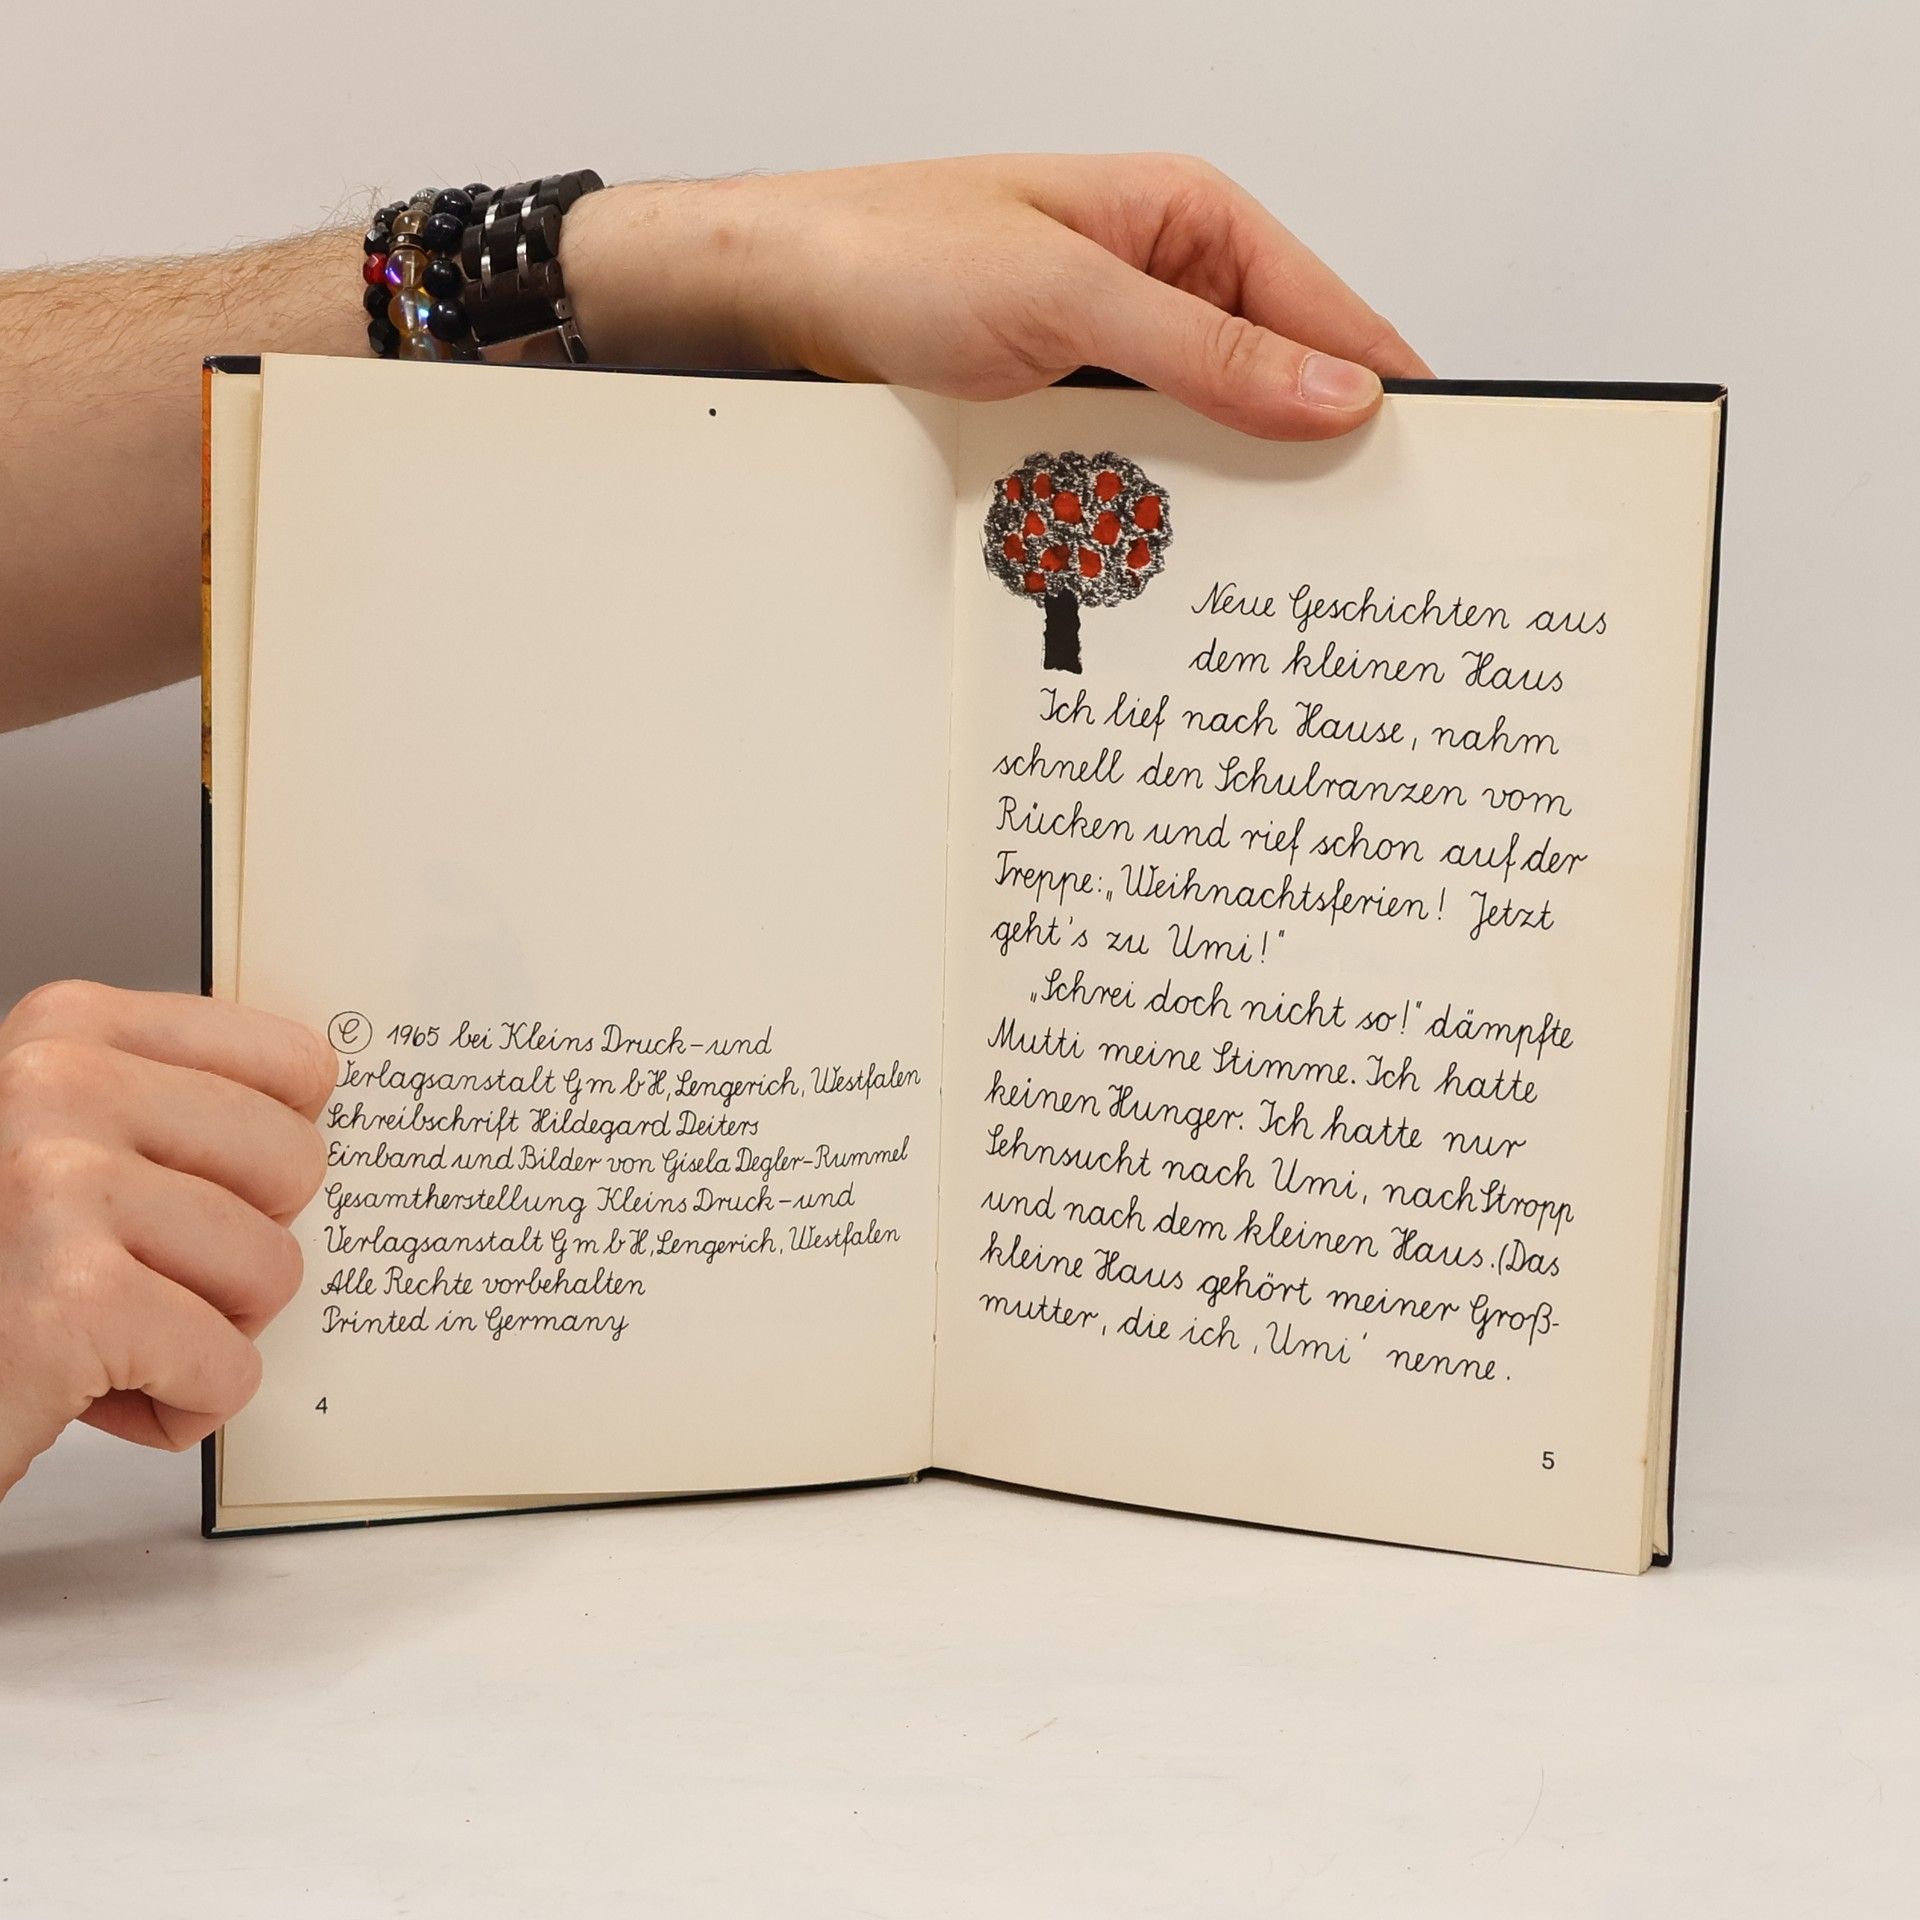 © 1965 bei Kleins Druck- und
Verlagsanstalt GmbH, Lengerich, Westfalen
Schreibschrift Hildegard Deiters
Einband und Bilder von Gisela Degler-Rummel
Gesamtherstellung Kleins Druck- und
Verlagsanstalt GmbH, Lengerich, Westfalen
Alle Rechte vorbehalten
Printed in Germany
4
Neue Geschichten aus
dem kleinen Haus
Ich lief nach Hause, nahm
schnell den Schulranzen vom
Rücken und rief schon auf der
Treppe: „Weihnachtsferien! Jetzt
geht's zu Umi!"
„Schrei doch nicht so!" dämpfte
Mutti meine Stimme. Ich hatte
keinen Hunger. Ich hatte nur
Sehnsucht nach Umi, nach Stropp
und nach dem kleinen Haus. (Das
kleine Haus gehört meiner Groß-
mutter, die ich ‚Umi' nenne.
5